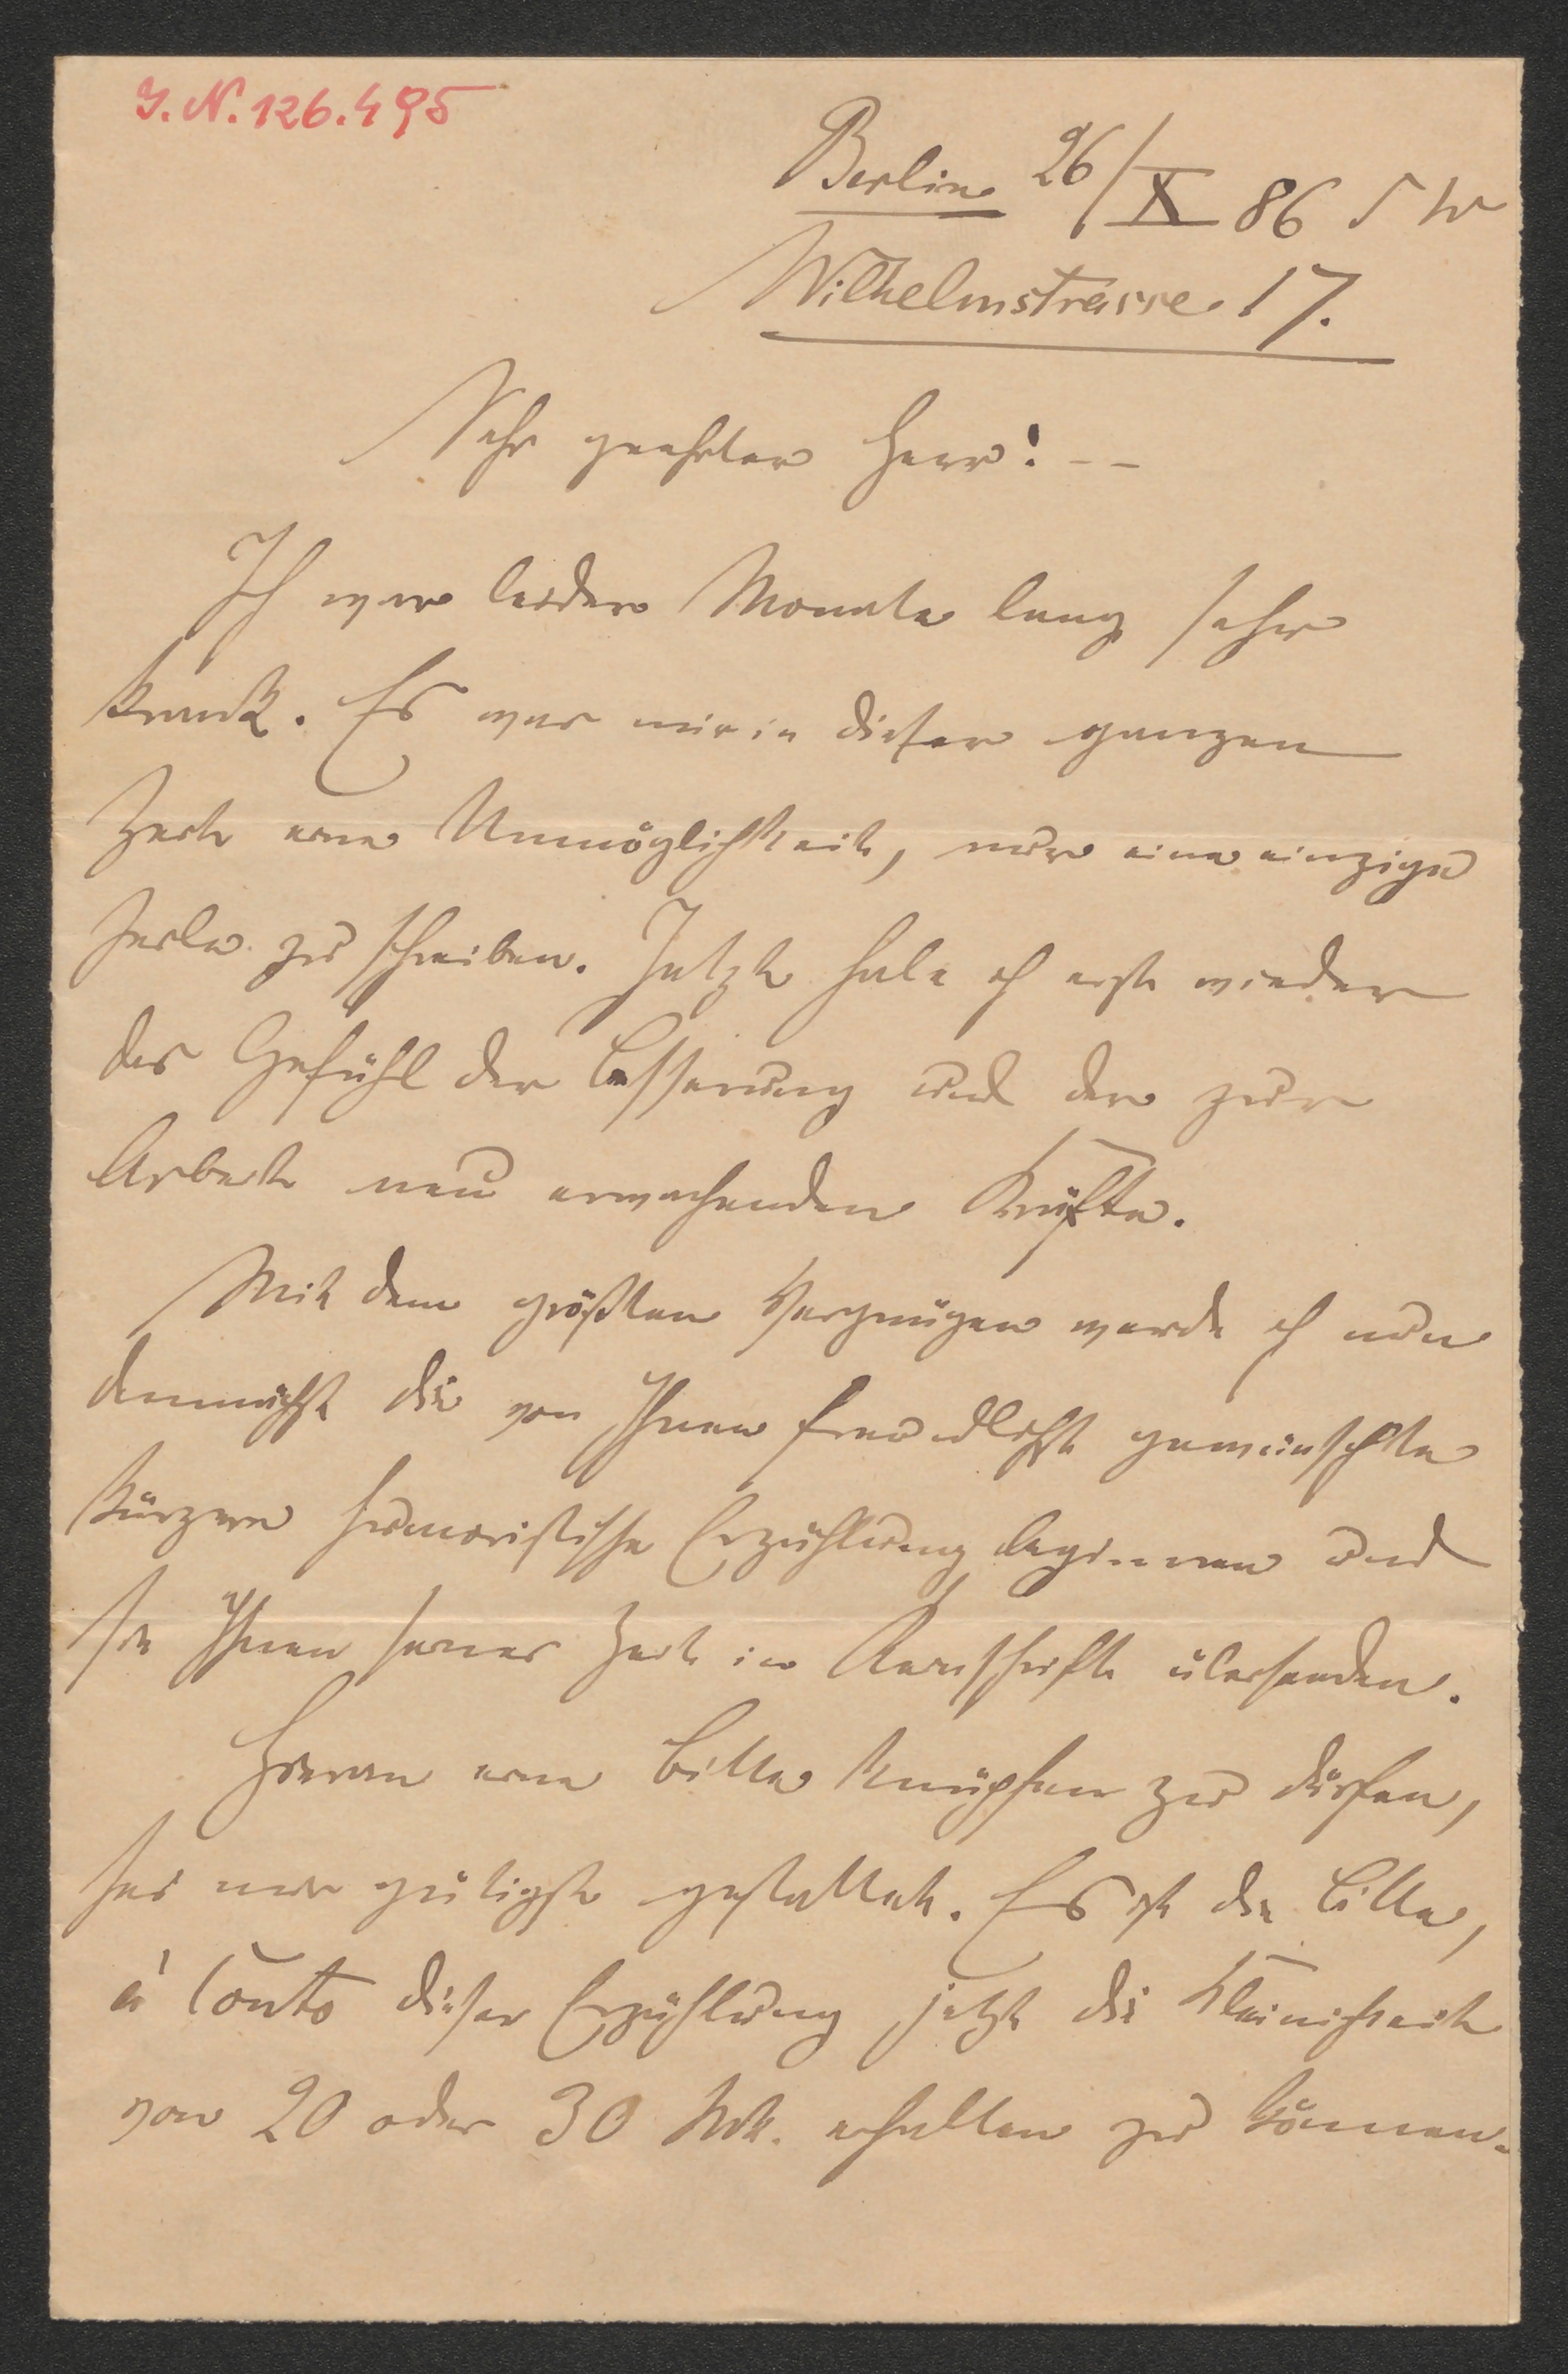 I. N. 126.495
Berlin 26/X 86 SW
Wilhelmstrasse 17.
Sehr geehrter Herr! --
Ich war leider Monate lang sehr
krank. Es war mir in dieser ganzen
Zeit eine Unmöglichkeit, nur eine einzige
Zeile zu schreiben. Jetzt habe ich erst wieder
das Gefühl der Besserung und der zur
Arbeit neu erwachenden Kräfte.
Mit dem größten Vergnügen werde ich nun
demnächst die von Ihnen freundlichst gewünschte
kürzere humoristische Erzählung beginnen und
sie Ihnen seiner Zeit in Reinschrift übersenden.
Hieran eine Bitte knüpfen zu dürfen,
sei mir gütigst gestattet. Es ist die Bitte,
à Conto dieser Erzählung jetzt die Kleinigkeit
von 20 oder 30 Mk. erhalten zu können.